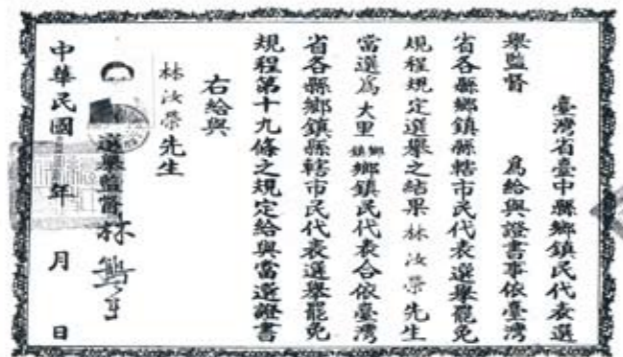 臺灣省臺中縣鄉鎮民代表選
舉監督 為給與證書事依臺灣
省各縣鄉鎮縣轄市民代表選舉罷免
規程規定選舉之結果林汝榮先生
當選爲大里鄉鎮鄉鎮民代表合依臺灣
省各縣鄉鎮縣轄市民代表選舉罷免
規程第十九條之規定給與當選證書
右給與
林汝榮先生
選舉監督 林
中華民國 年 月 日